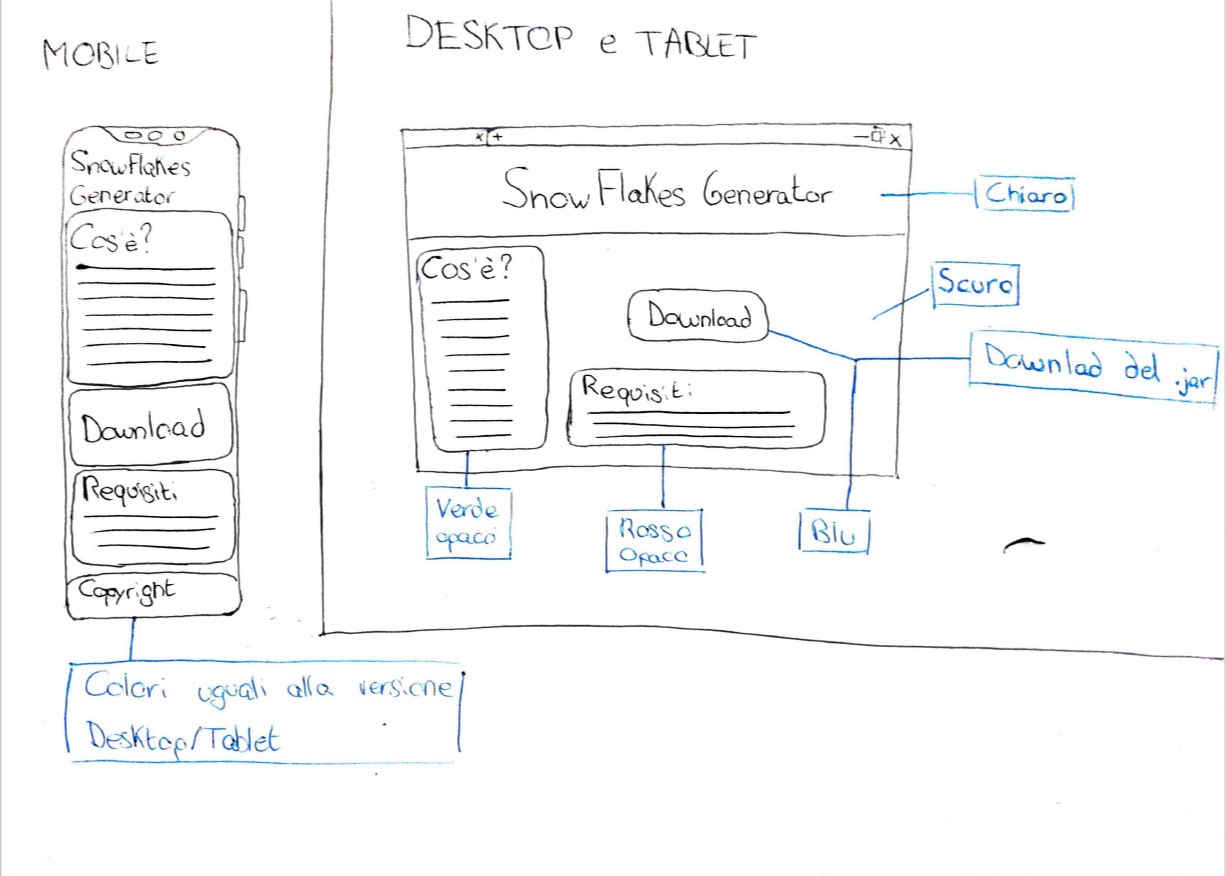 MOBILE
SnowFlakes
Generator
Cos'è?
Download
Requisiti
Copyright
Colori uguali alla versione
Desktop/Tablet
DESKTOP e TABLET
x +
SnowFlakes Generator
Chiaro
Cos'è?
Download
Scuro
Downlad del .jar
Requisiti
Verde
opaco
Rosso
Opaco
Blu